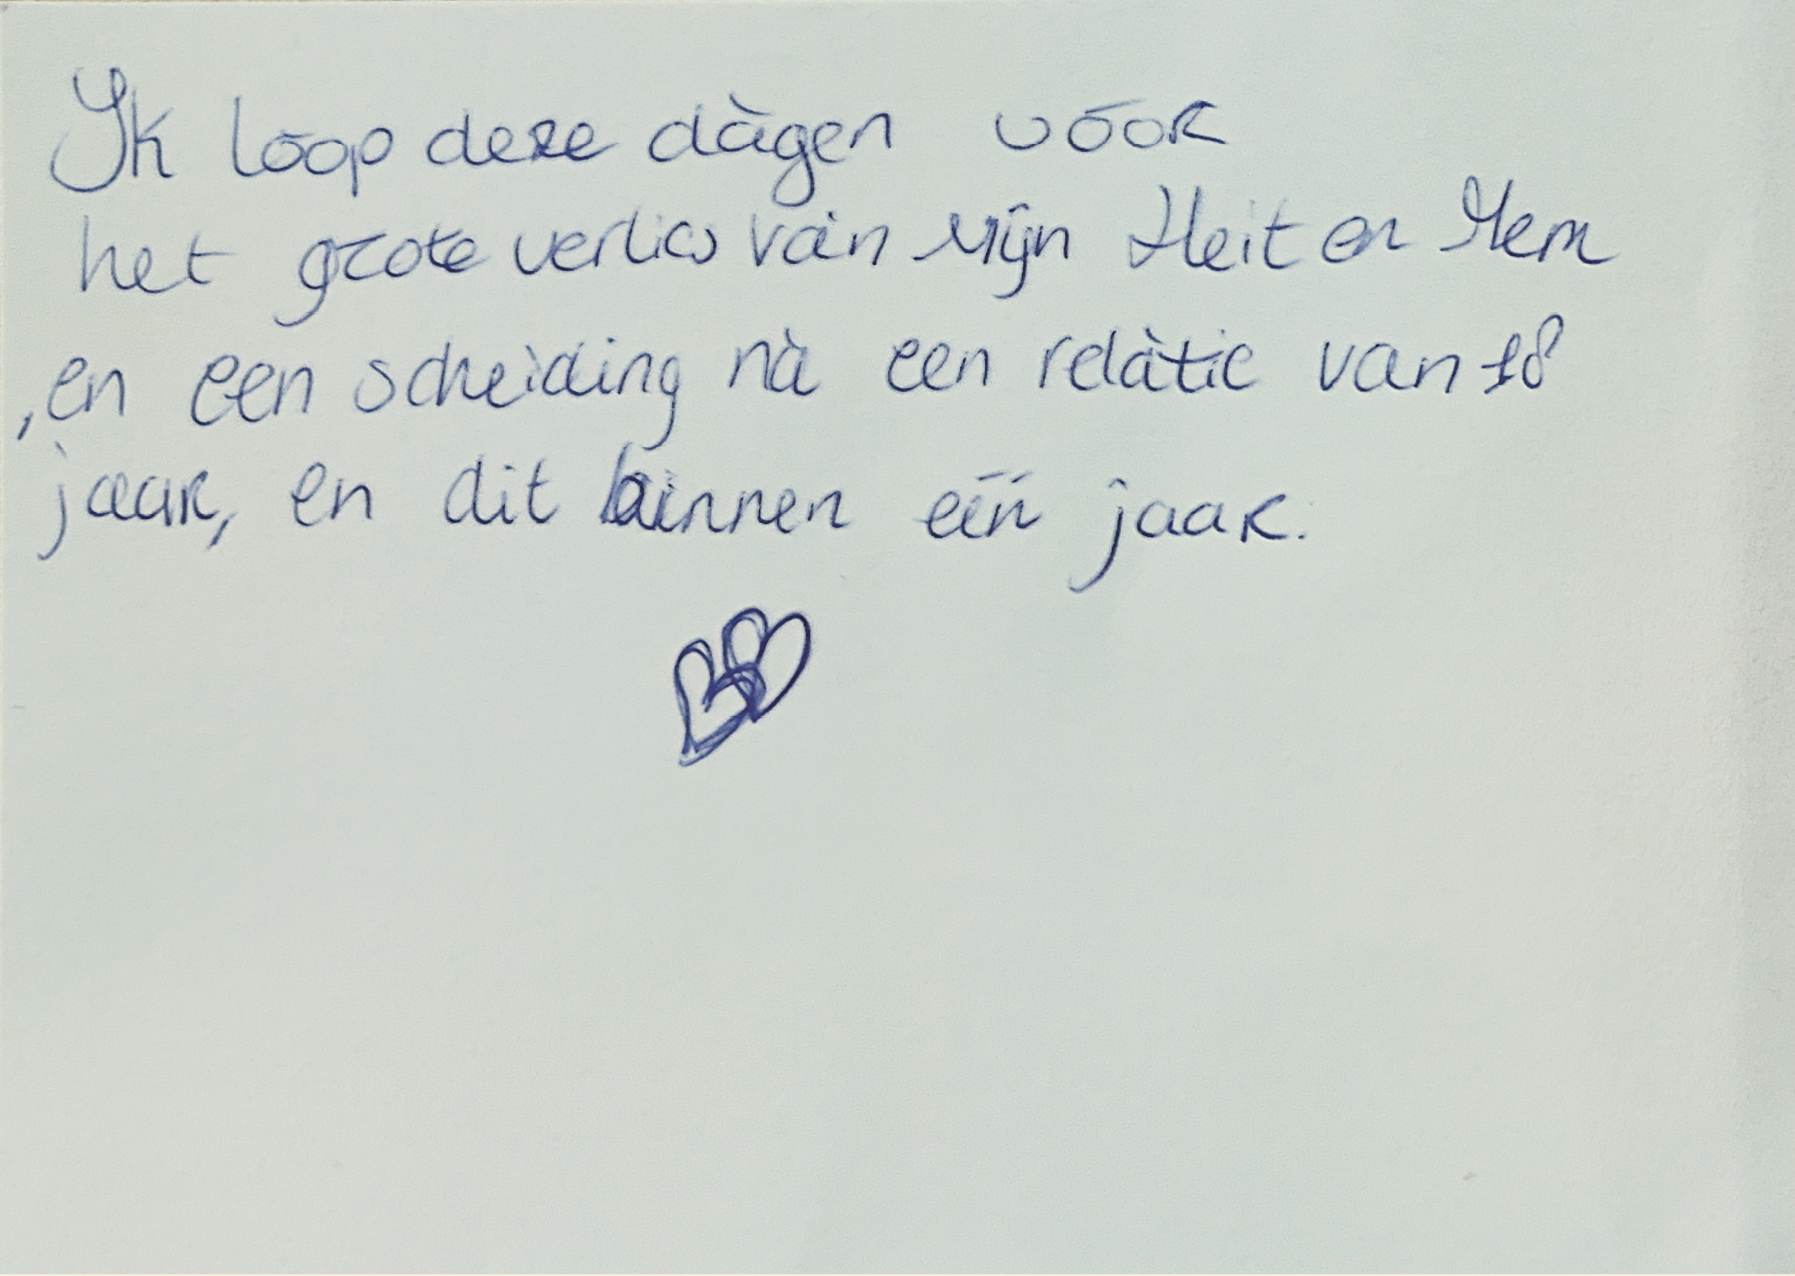 Ik loop deze dagen vóór
het grote verlies van mijn Heit en Mem
, en een scheiding na een relatie van 18
jaar, en dit binnen één jaar.